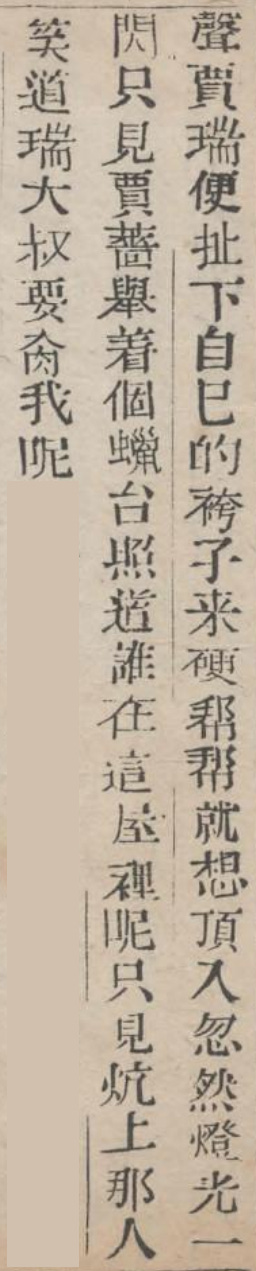 聲賈瑞便扯下自已的袴子来硬帮帮就想頂入忽然燈光一
閃只見賈薔舉着個蠟台照道誰在這屋裡呢只見炕上那人
笑道瑞大叔要肏我呢